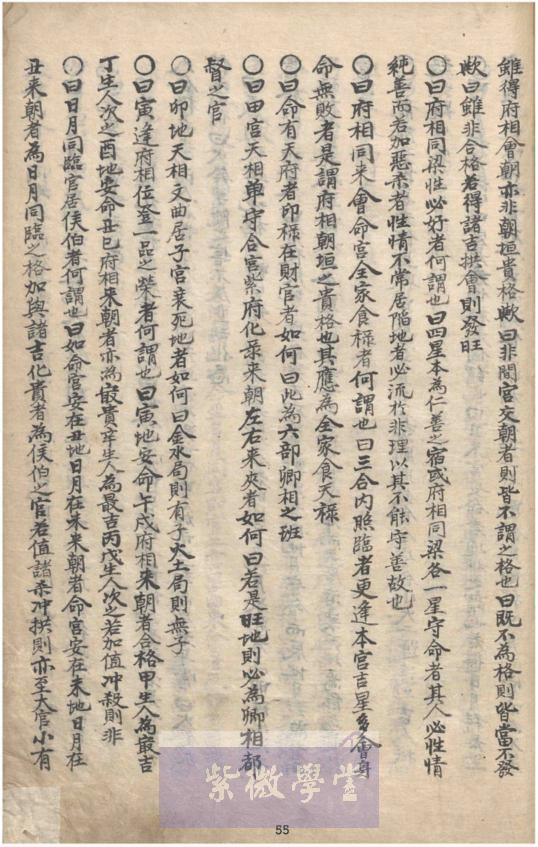 雖得府相會朝亦非朝垣貴格歟曰非間宮交朝者則皆不謂之格也曰既不為格則皆當不發
歟曰雖非合格若得諸吉拱會則發旺
〇曰府相同梁性必好者何謂也曰四星本為仁善之宿或府相同梁各一星守命者其人必性情
純善而若加惡杀者性情不常居陷地者必流於非理以其不能守善故也
〇曰府相同来會命宮全家食祿者何謂也曰三合內照臨者更逢本宮吉星多會身
命無敗者是謂府相朝垣之貴格也其應為全家食天祿
〇曰命有天府者印祿在財官者如何曰此為六部卿相之班
〇曰田宮天相单守合宮紫府化来朝左右来夾者如何曰若是旺地則必為卿相都
督之官
〇曰卯地天相文曲居子宮衰死地者如何曰金水局則有子火土局則無子
〇曰寅逢府相位登一品之榮者何謂也曰寅地安命午戌府相来朝者合格甲生人為最吉
丁生人次之酉地安命丑巳府相来朝者亦為最貴辛生人為最吉丙戊生人次之若加值冲殺則非
〇曰日月同臨官居侯伯者何謂也曰如命宮安在丑地日月在未来朝者命宮安在未地日月在
丑来朝者為日月同臨之格加與諸吉化貴者為侯伯之官若值諸杀冲拱則亦至大官小有
紫微學堂
55